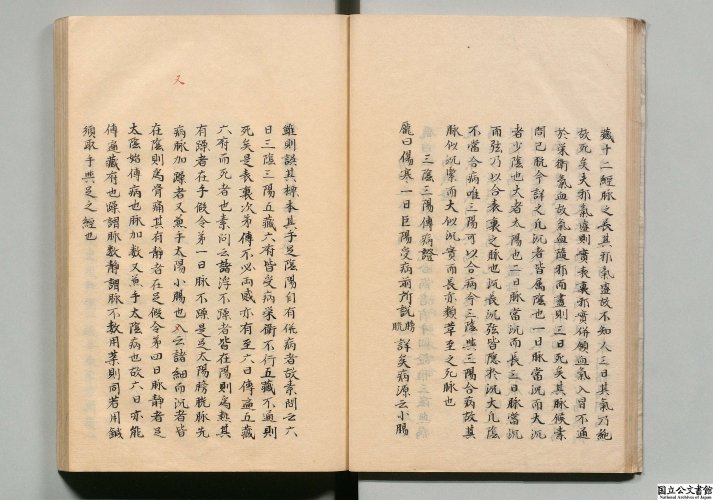 藏十二經脉之長其邪氣盛故不知人三日其氣乃絶
故死矣夫邪氣盛則實表裏邪實併願血氣入胃不通
於荣衛氣血故氣血隨邪而盡則三日死矣其脉候素
問已脱今詳之凡沉者皆属陰也一日脉當沉而大沉
者少陰也大者太陽也二日脉當沉而長三日脉當沉
而弦乃以合表裏之脉也沉長沉弦皆應於沉大凡陰
不當合病唯三陽可以合病今三陰與三陽合病故其
脉似沉緊而大似沉實而長亦類蕈至之死脉也
三陰三陽傳病證
龐曰傷寒一日巨陽受病前所説膀胱詳矣病源云小腸
雖則誤其標本其手足陰陽自有併病者故素問云六
日三陰三陽五藏六府皆受病荣衛不行五藏不通則
死矣是表裏次第傳不必兩感亦有至六日傳遍五藏
六府而死者也素問云諸浮不躁者皆在陽則爲熱其
有躁者在手假令第一日脉不躁是足太陽膀胱脉先
病脉加躁者又兼手太陽小腸也又云諸細而沉者皆
在陰則爲骨痛其有静者在足假令第四日脉静者足
太陰始傳病也脉加数又兼手太陰病也故六日亦能
傳遍藏府也躁謂脉数静謂脉不数用藥則同若用鍼
須取手與足之經也
又
国立公文書館
National Archives of Japan